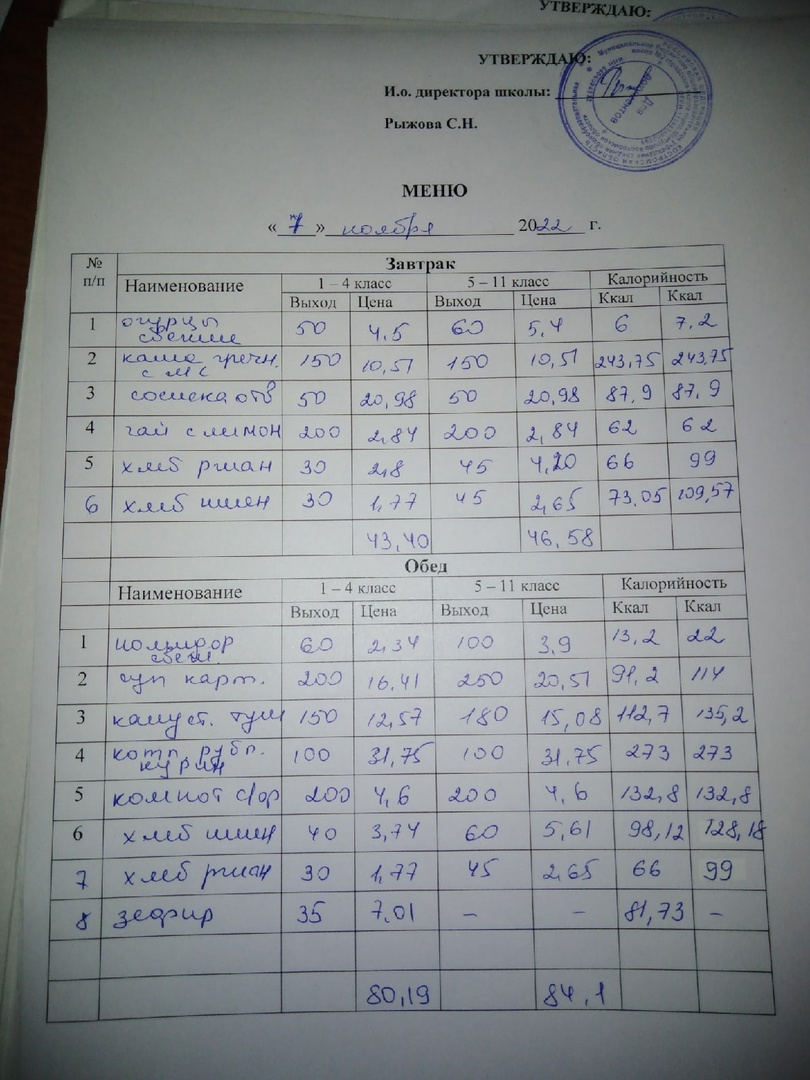 УТВЕРЖДАЮ:
УТВЕРЖДАЮ:
И.о. директора школы:
Рыжова С.Н.
Для документов
МЕНЮ
« 7 » ноября 2022 г.
№ п/п Завтрак
Наименование 1 – 4 класс 5 – 11 класс Калорийность
Выход Цена Выход Цена Ккал Ккал
1 огурцы свежие 50 4,5 60 5,4 6 7,2
2 каша гречн. с мс 150 10,51 150 10,51 243,75 243,75
3 сосиска отв 50 20,98 50 20,98 87,9 87,9
4 чай с лимон 200 2,84 200 2,84 62 62
5 хлеб ржан 30 2,8 45 4,20 66 99
6 хлеб пшен 30 1,77 45 2,65 73,05 109,57
43,40 46,58
Обед
Наименование 1 – 4 класс 5 – 11 класс Калорийность
Выход Цена Выход Цена Ккал Ккал
1 помидор свеж 60 2,34 100 3,9 13,2 22
2 суп карт. 200 16,41 250 20,51 91,2 114
3 капуст. туш 150 12,57 180 15,08 112,7 135,2
4 котл. рубл. курин 100 31,75 100 31,75 273 273
5 компот с/ф 200 4,6 200 4,6 132,8 132,8
6 хлеб пшен 40 3,74 60 5,61 98,12 128,18
7 хлеб ржан 30 1,77 45 2,65 66 99
8 зефир 35 7,01 – – 81,73 –
80,19 84,1